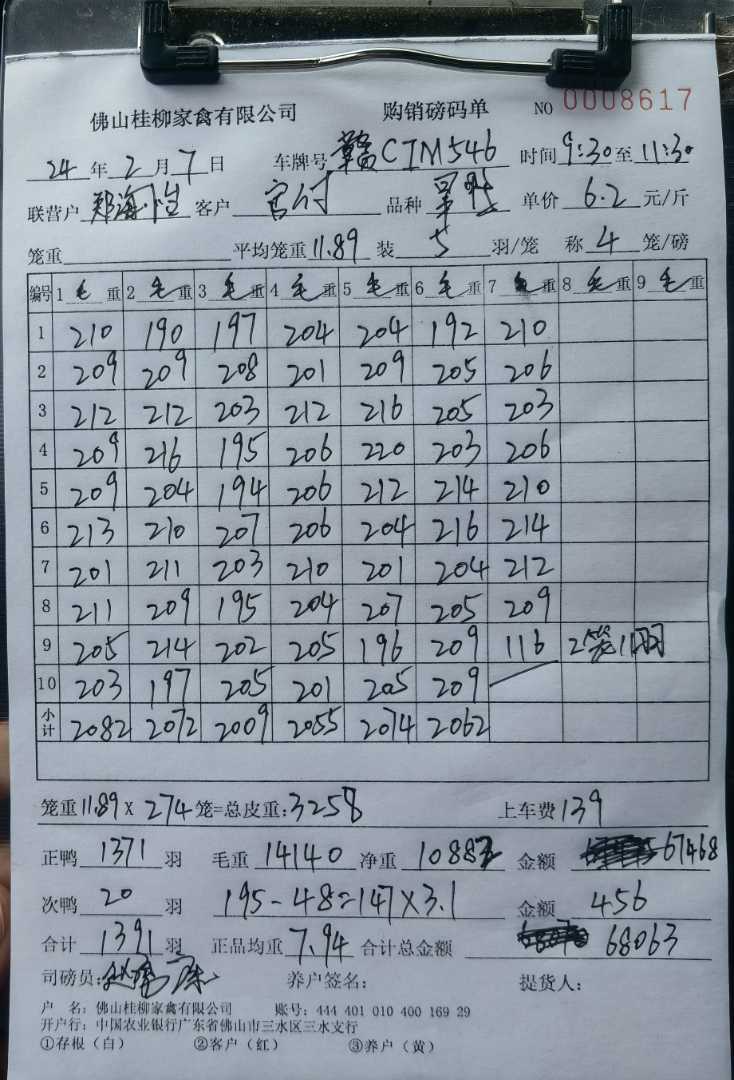 佛山桂柳家禽有限公司 购销磅码单 NO 0008617
24 年 2 月 7 日 车牌号 赣CTM546 时间 9:30 至 11:30
联营户 郑海 客户 官付 品种 单价 6.2 元/斤
笼重 平均笼重 11.89 装 5 羽/笼 称 4 笼/磅
编号 1 毛 重 2 毛 重 3 毛 重 4 毛 重 5 毛 重 6 毛 重 7 毛 重 8 毛 重 9 毛 重
1 210 190 197 204 204 192 210
2 209 209 208 201 209 205 206
3 212 212 203 212 216 205 203
4 209 216 195 206 220 203 206
5 209 204 194 206 212 214 210
6 213 210 207 206 204 216 214
7 201 211 203 210 201 204 212
8 211 209 195 204 207 205 209
9 205 214 202 205 196 209 116 2笼11羽
10 203 197 205 201 205 209
小计 2082 2072 2009 2055 2074 2062
笼重 11.89 X 274 笼=总皮重: 3258 上车费 139
正鸭 1371 羽 毛重 14140 净重 10882 金额 67468
次鸭 20 羽 195-48=147X3.1 金额 456
合计 1391 羽 正品均重 7.94 合计总金额 68063
司磅员: 养户签名: 提货人:
户 名: 佛山桂柳家禽有限公司 账号: 444 401 010 400 169 29
开户行: 中国农业银行广东省佛山市三水区三水支行
①存根(白) ②客户(红) ③养户(黄)